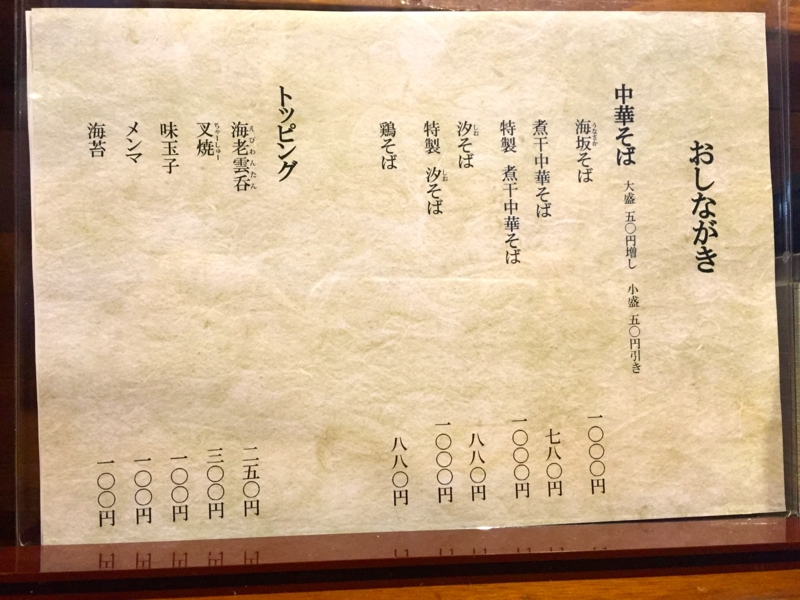 おしながき
中華そば 大盛 五〇円増し 小盛 五〇円引き
海坂そば 一〇〇〇円
煮干中華そば 七八〇円
特製 煮干中華そば 一〇〇〇円
汐そば 八八〇円
特製 汐そば 一〇〇〇円
鶏そば 八八〇円
トッピング
海老雲呑 二五〇円
叉焼 三〇〇円
味玉子 一〇〇円
メンマ 一〇〇円
海苔 一〇〇円